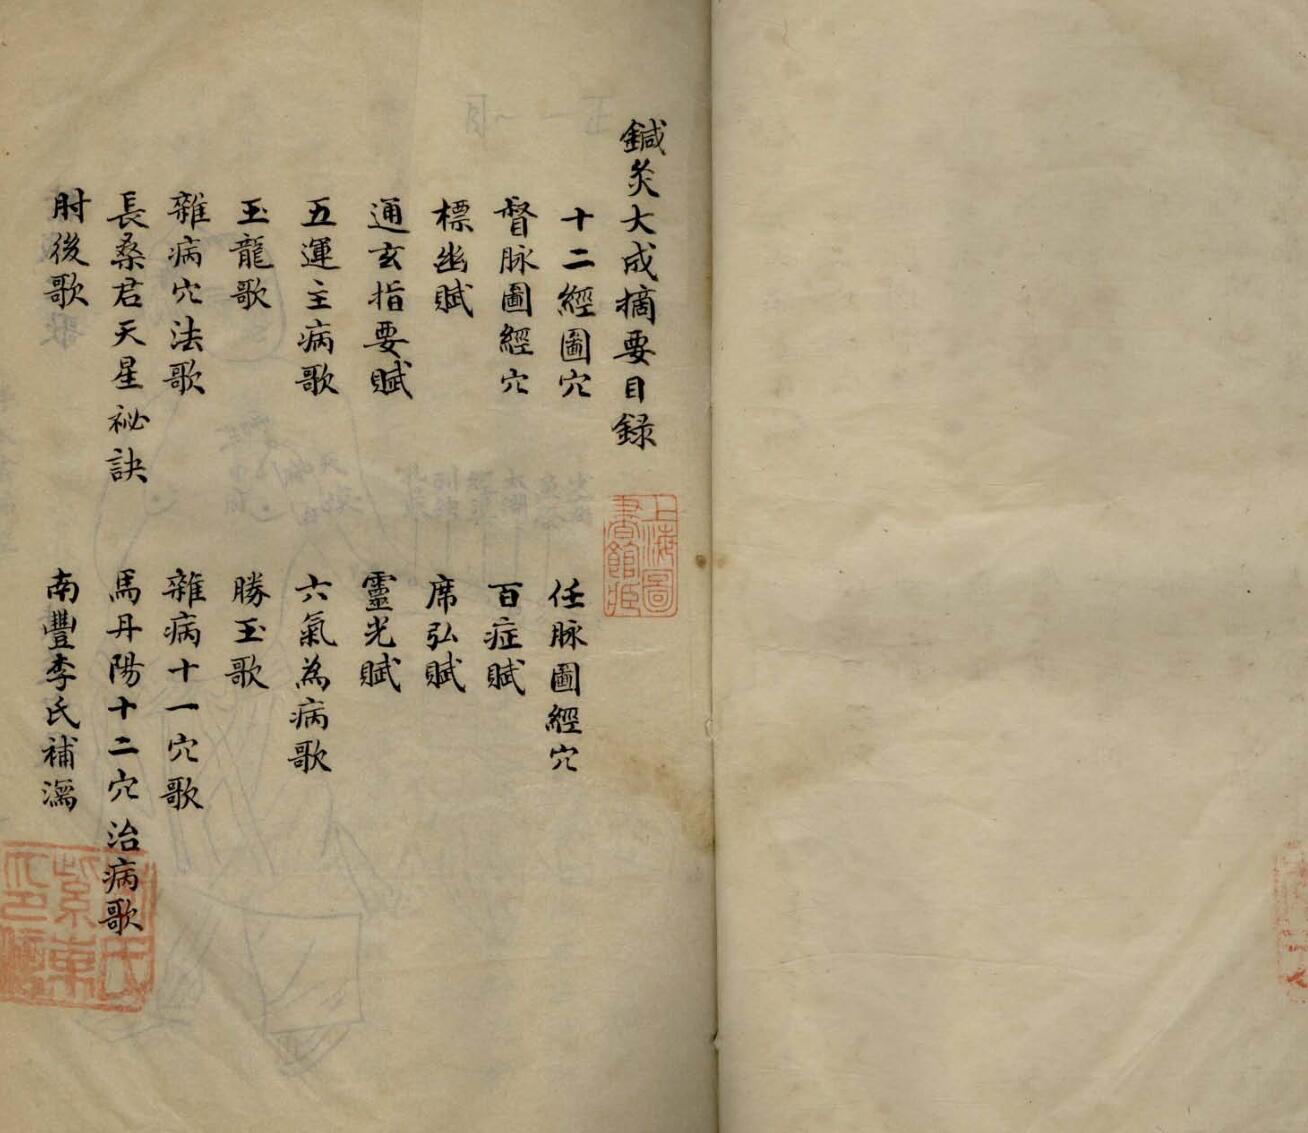 鍼灸大成摘要目録
十二經圖穴
任脉圖經穴
督脉圖經穴
百症賦
標幽賦
席弘賦
通玄指要賦
靈光賦
五運主病歌
六氣為病歌
玉龍歌
勝玉歌
雜病穴法歌
雜病十一穴歌
長桑君天星祕訣
馬丹陽十二穴治病歌
肘後歌
南豐李氏補瀉
上海圖書館藏